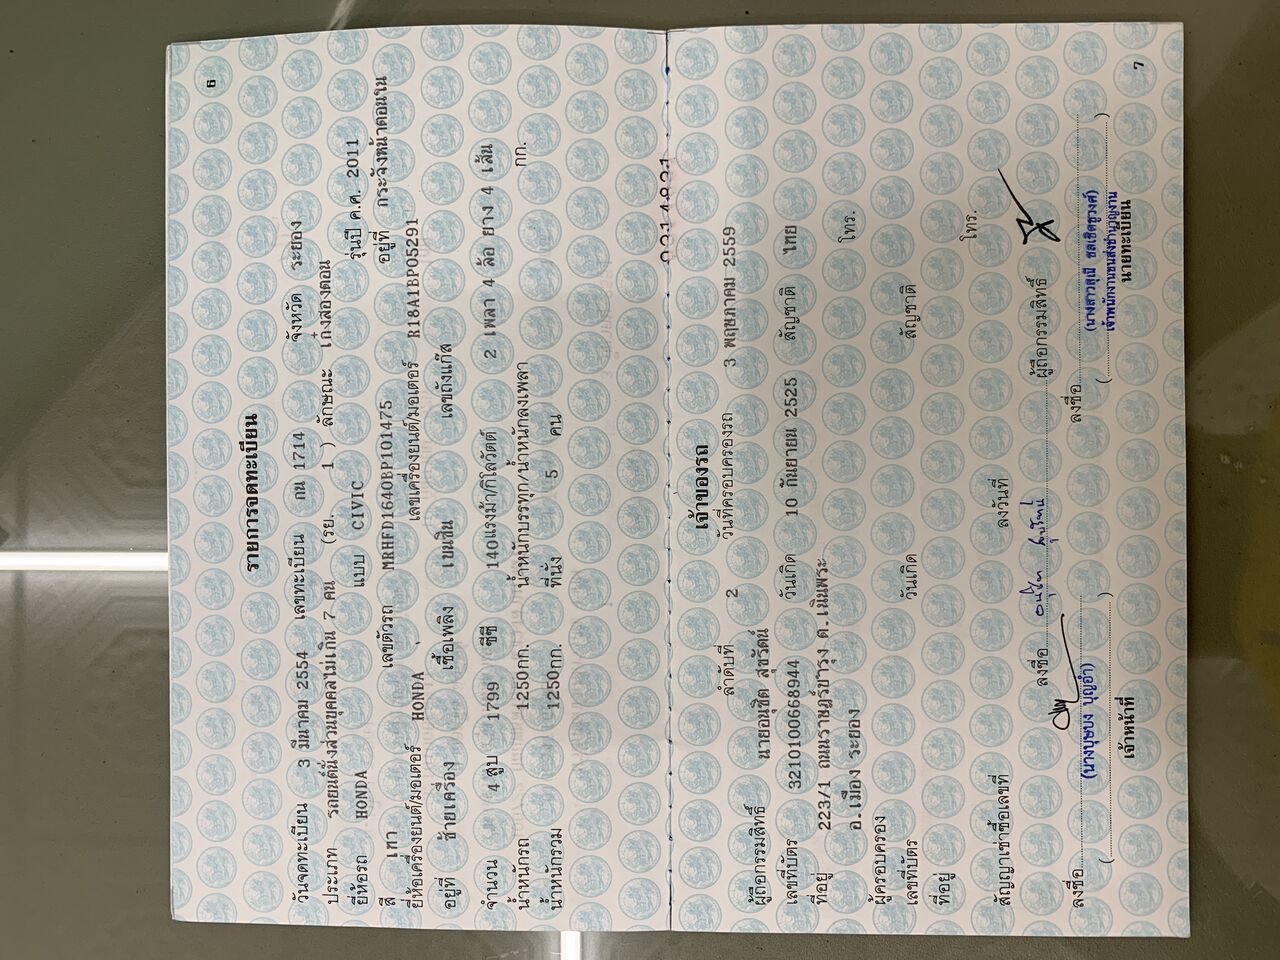 6
รายการจดทะเบียน
วันจดทะเบียน 3 มีนาคม 2554 เลขทะเบียน กน 1714 จังหวัด ระยอง
ประเภท รถยนต์นั่งส่วนบุคคลไม่เกิน 7 คน (รย. 1 ) ลักษณะ เก๋งสองตอน
ยี่ห้อรถ HONDA แบบ CIVIC รุ่นปี ค.ศ. 2011
สี เทา เลขตัวรถ MRHFD1640BP101475 อยู่ที่ กระจังหน้าตอนใน
ยี่ห้อเครื่องยนต์/มอเตอร์ HONDA เลขเครื่องยนต์/มอเตอร์ R18A1BP05291
อยู่ที่ ซ้ายเครื่อง เชื้อเพลิง เบนซิน เลขถังแก๊ส
จำนวน 4 สูบ 1799 ซีซี 140แรงม้า/กิโลวัตต์ 2 เพลา 4 ล้อ ยาง 4 เส้น
น้ำหนักรถ 1250กก. น้ำหนักบรรทุก/น้ำหนักลงเพลา กก.
น้ำหนักรวม 1250กก. ที่นั่ง 5 คน
เจ้าของรถ
ลำดับที่ 2 วันที่ครอบครองรถ 3 พฤษภาคม 2559
ผู้ถือกรรมสิทธิ์ นายอนุชิต สุขรัตน์
เลขที่บัตร 3210100668944 วันเกิด 10 กันยายน 2525 สัญชาติ ไทย
ที่อยู่ 223/1 ถนนราษฎร์บำรุง ต.เนินพระ โทร.
อ.เมือง ระยอง
ผู้ครอบครอง
เลขที่บัตร วันเกิด สัญชาติ
ที่อยู่ โทร.
สัญญาเช่าซื้อเลขที่ ลงวันที่
ลงชื่อ ผู้ถือกรรมสิทธิ์
ลงชื่อ ลงชื่อ
(นางบุษบง บุญอำ) (นางสาวสุณี ชลเชิดชูวงศ์)
เจ้าพนักงานขนส่งชำนาญงาน
เจ้าหน้าที่ นายทะเบียน
7